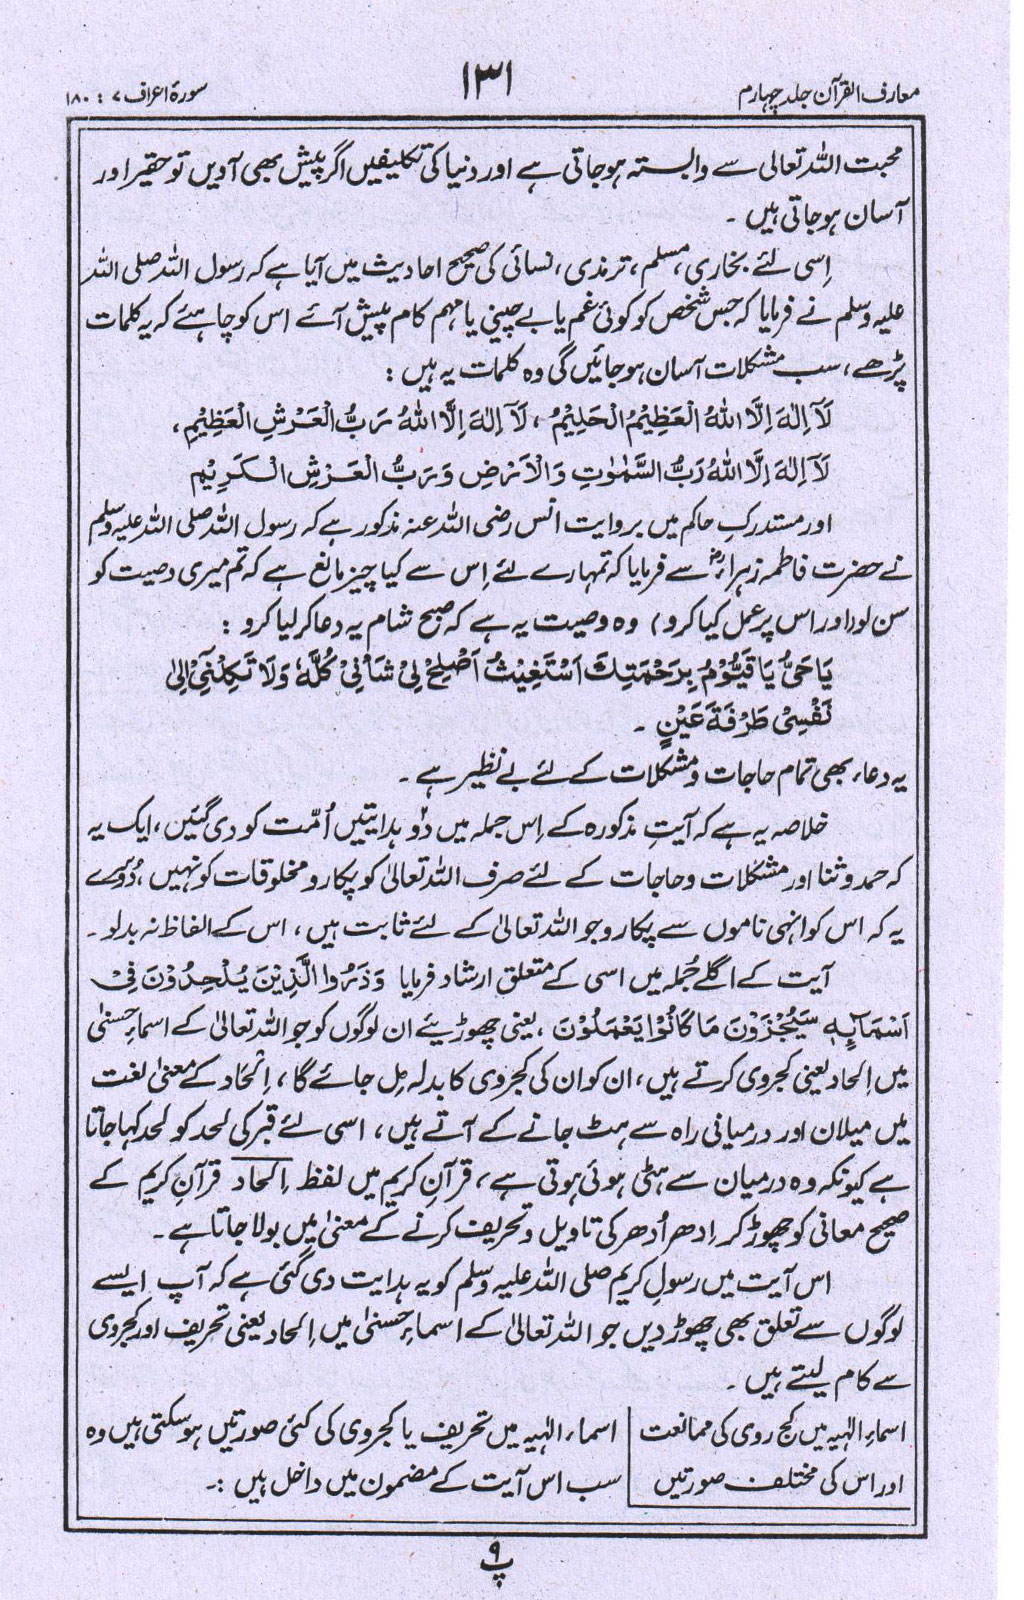 معارف القرآن جلد چہارم
۱۳۱
سورۂ اعراف ۷ : ۱۸۰
محبت اللہ تعالیٰ سے وابستہ ہوجاتی ہے اور دنیا کی تکلیفیں اگر پیش بھی آویں تو حقیر اور
آسان ہوجاتی ہیں ۔
اِسی لئے بخاری، مسلم، ترمذی، نسائی کی صحیح احادیث میں آیا ہے کہ رسول اللہ صلی اللہ
علیہ وسلم نے فرمایا کہ جس شخص کو کوئی غم یا بے چینی یا مہم کام پیش آئے اس کو چاہئے کہ یہ کلمات
پڑھے، سب مشکلات آسان ہوجائیں گی وہ کلمات یہ ہیں :
لَآ اِلٰهَ اِلَّا اللّٰهُ الْعَظِیْمُ الْحَلِیْمُ ، لَآ اِلٰهَ اِلَّا اللّٰهُ رَبُّ الْعَرْشِ الْعَظِیْمِ ،
لَآ اِلٰهَ اِلَّا اللّٰهُ رَبُّ السَّمٰوٰتِ وَالْاَرْضِ وَرَبُّ الْعَرْشِ الْكَرِیْمِ
اور مستدرکِ حاکم میں بروایت انس رضی اللہ عنہ مذکور ہے کہ رسول اللہ صلی اللہ علیہ وسلم
نے حضرت فاطمہ زہراءؓ سے فرمایا کہ تمہارے لئے اِس سے کیا چیز مانع ہے کہ تم میری وصیت کو
سن لو (اور اس پر عمل کیا کرو) وہ وصیت یہ ہے کہ صبح شام یہ دعا کر لیا کرو :
یَا حَیُّ یَا قَیُّوْمُ بِرَحْمَتِكَ اَسْتَغِیْثُ اَصْلِحْ لِیْ شَاْنِیْ كُلَّهٗ وَلَا تَكِلْنِیْٓ اِلٰی
نَفْسِیْ طَرْفَةَ عَیْنٍ ۔
یہ دعاء بھی تمام حاجات ومشکلات کے لئے بے نظیر ہے ۔
خلاصہ یہ ہے کہ آیتِ مذکورہ کے اِس جملہ میں دوؔ ہدایتیں اُمّت کو دی گئیں، ایک یہ
کہ حمد وثنا اور مشکلات وحاجات کے لئے صرف اللہ تعالیٰ کو پکارو مخلوقات کو نہیں، دُوسرے
یہ کہ اس کو انہی ناموں سے پکارو جو اللہ تعالیٰ کے لئے ثابت ہیں، اس کے الفاظ نہ بدلو ۔
آیت کے اگلے جُملہ میں اسی کے متعلق ارشاد فرمایا وَذَرُوا الَّذِیْنَ یُلْحِدُوْنَ فِیْٓ
اَسْمَآىِٕهٖ سَیُجْزَوْنَ مَا كَانُوْا یَعْمَلُوْنَ ، یعنی چھوڑیئے ان لوگوں کو جو اللہ تعالیٰ کے اسماءِ حسنیٰ
میں اِلحاد یعنی کجروی کرتے ہیں، ان کو ان کی کجروی کا بدلہ مِل جائے گا، اِلحاد کے معنیٰ لغت
میں میلان اور درمیانی راہ سے ہٹ جانے کے آتے ہیں، اسی لئے قبر کی لحد کو لحد کہا جاتا
ہے کیونکہ وہ درمیان سے ہٹی ہوئی ہوتی ہے، قرآنِ کریم میں لفظ اِلحاد قرآن کریم کے
صحیح معانی کو چھوڑ کر اِدھر اُدھر کی تاویل وتحریف کرنے کے معنیٰ میں بولا جاتا ہے ۔
اس آیت میں رسول کریم صلی اللہ علیہ وسلم کو یہ ہدایت دی گئی ہے کہ آپ ایسے
لوگوں سے تعلق بھی چھوڑ دیں جو اللہ تعالیٰ کے اسماءِ حسنیٰ میں اِلحاد یعنی تحریف اور کجروی
سے کام لیتے ہیں ۔
اسماءِ الٰہیہ میں کج روی کی ممانعت
اور اس کی مختلف صورتیں
اسماء الٰہیہ میں تحریف یا کجروی کی کئی صورتیں ہوسکتی ہیں وہ
سب اس آیت کے مضمون میں داخل ہیں :۔
پ ۹